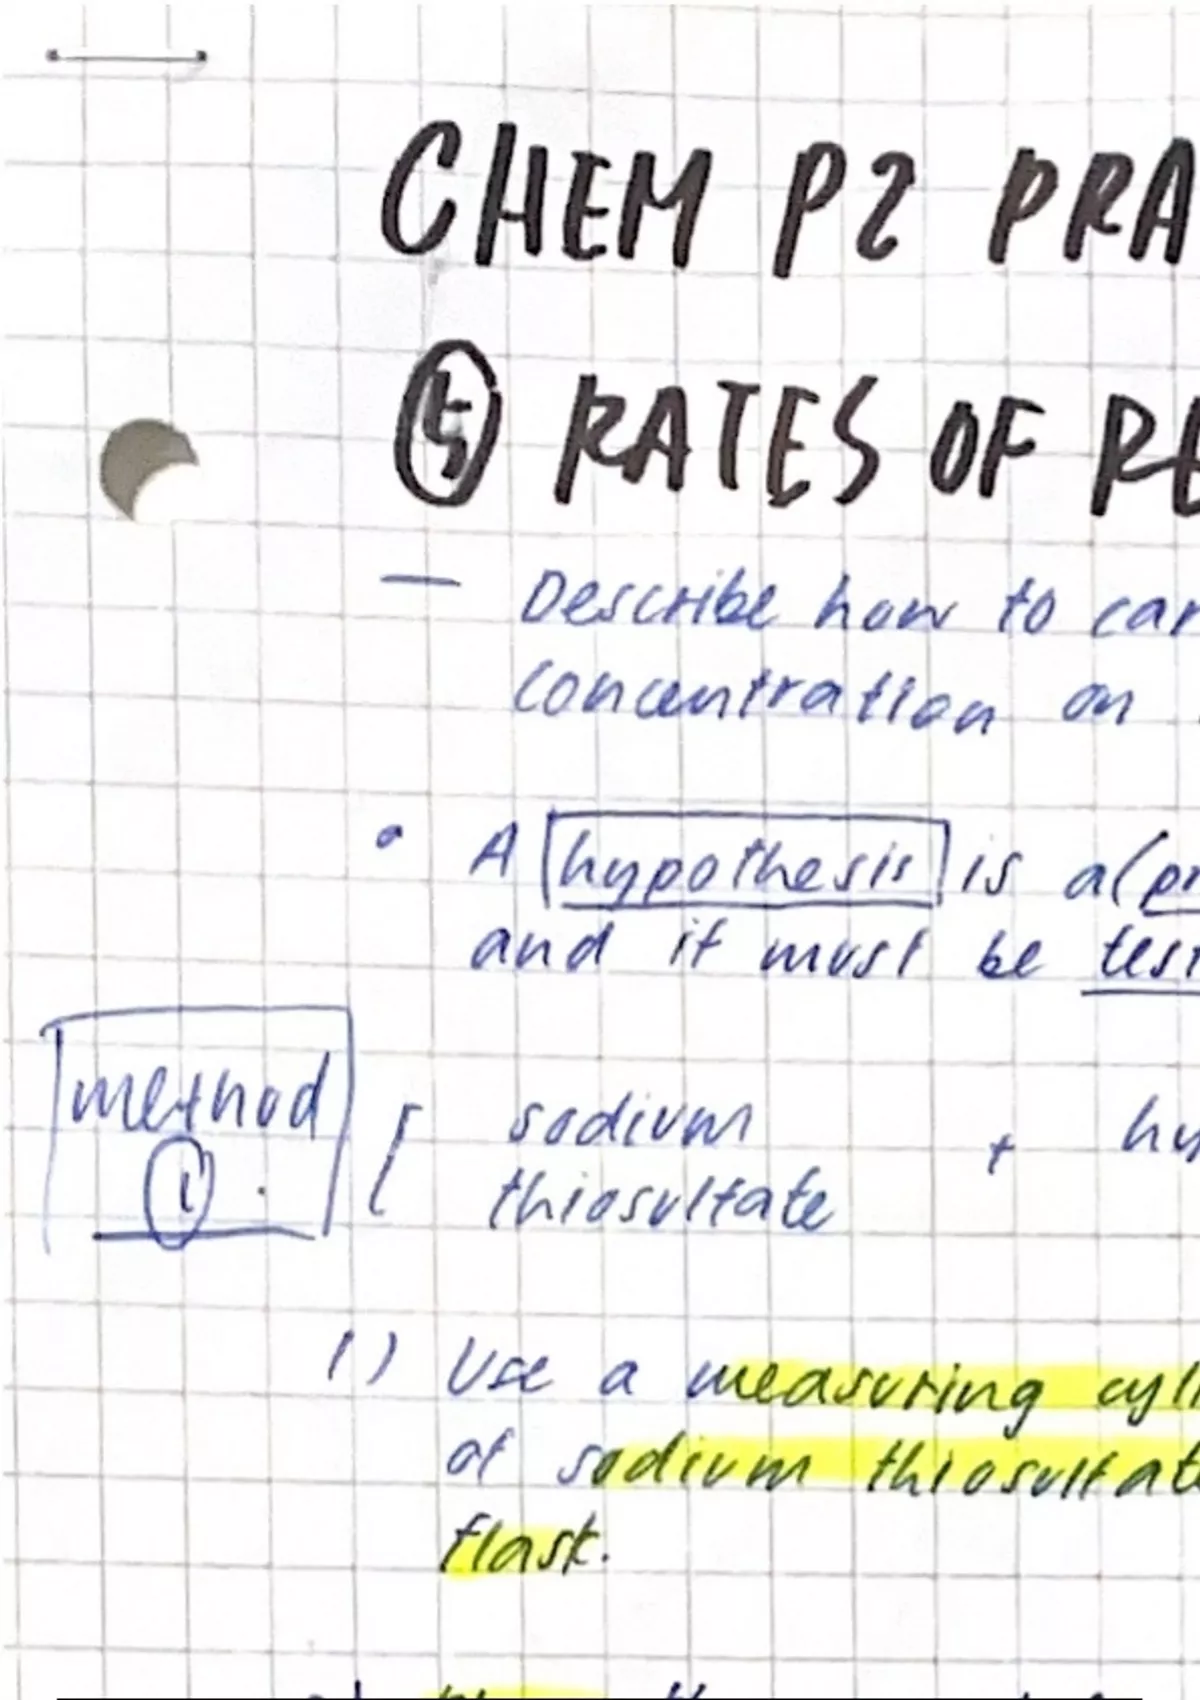 CHEM P2 PRA
⑤ RATES OF RE
— Describe how to car
concentration on
• A hypothesis is a (pr
and it must be test
method
①
sodium + hy
thiosulfate
1) Use a measuring cyli
of sodium thiosulfate
flask.